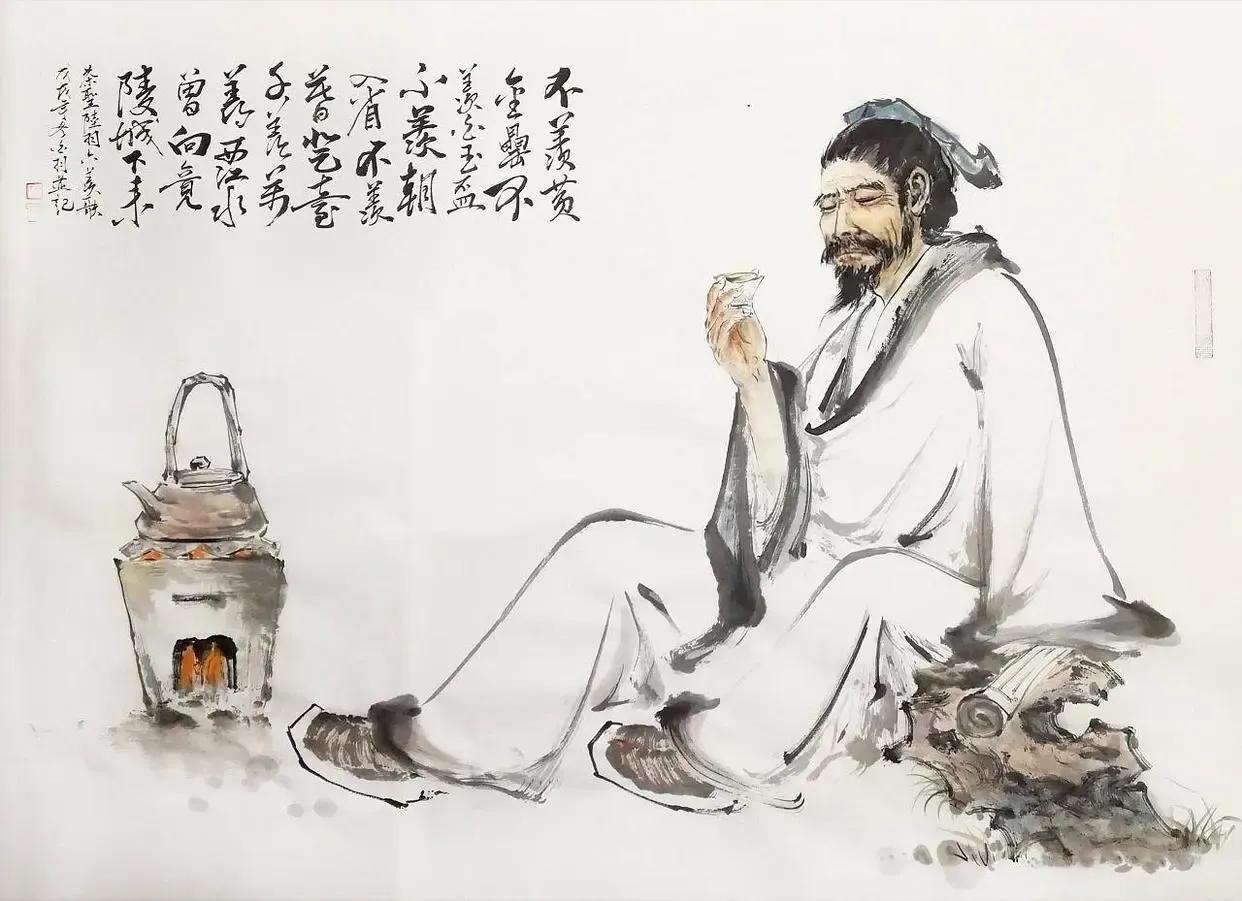 不羡黄
金罍不
羡白玉盃
不羡朝
入省不羡
暮登臺
千羡萬
羡西江水
曾向竟
陵城下来
茶聖陸羽六羡歌
戊戌年冬